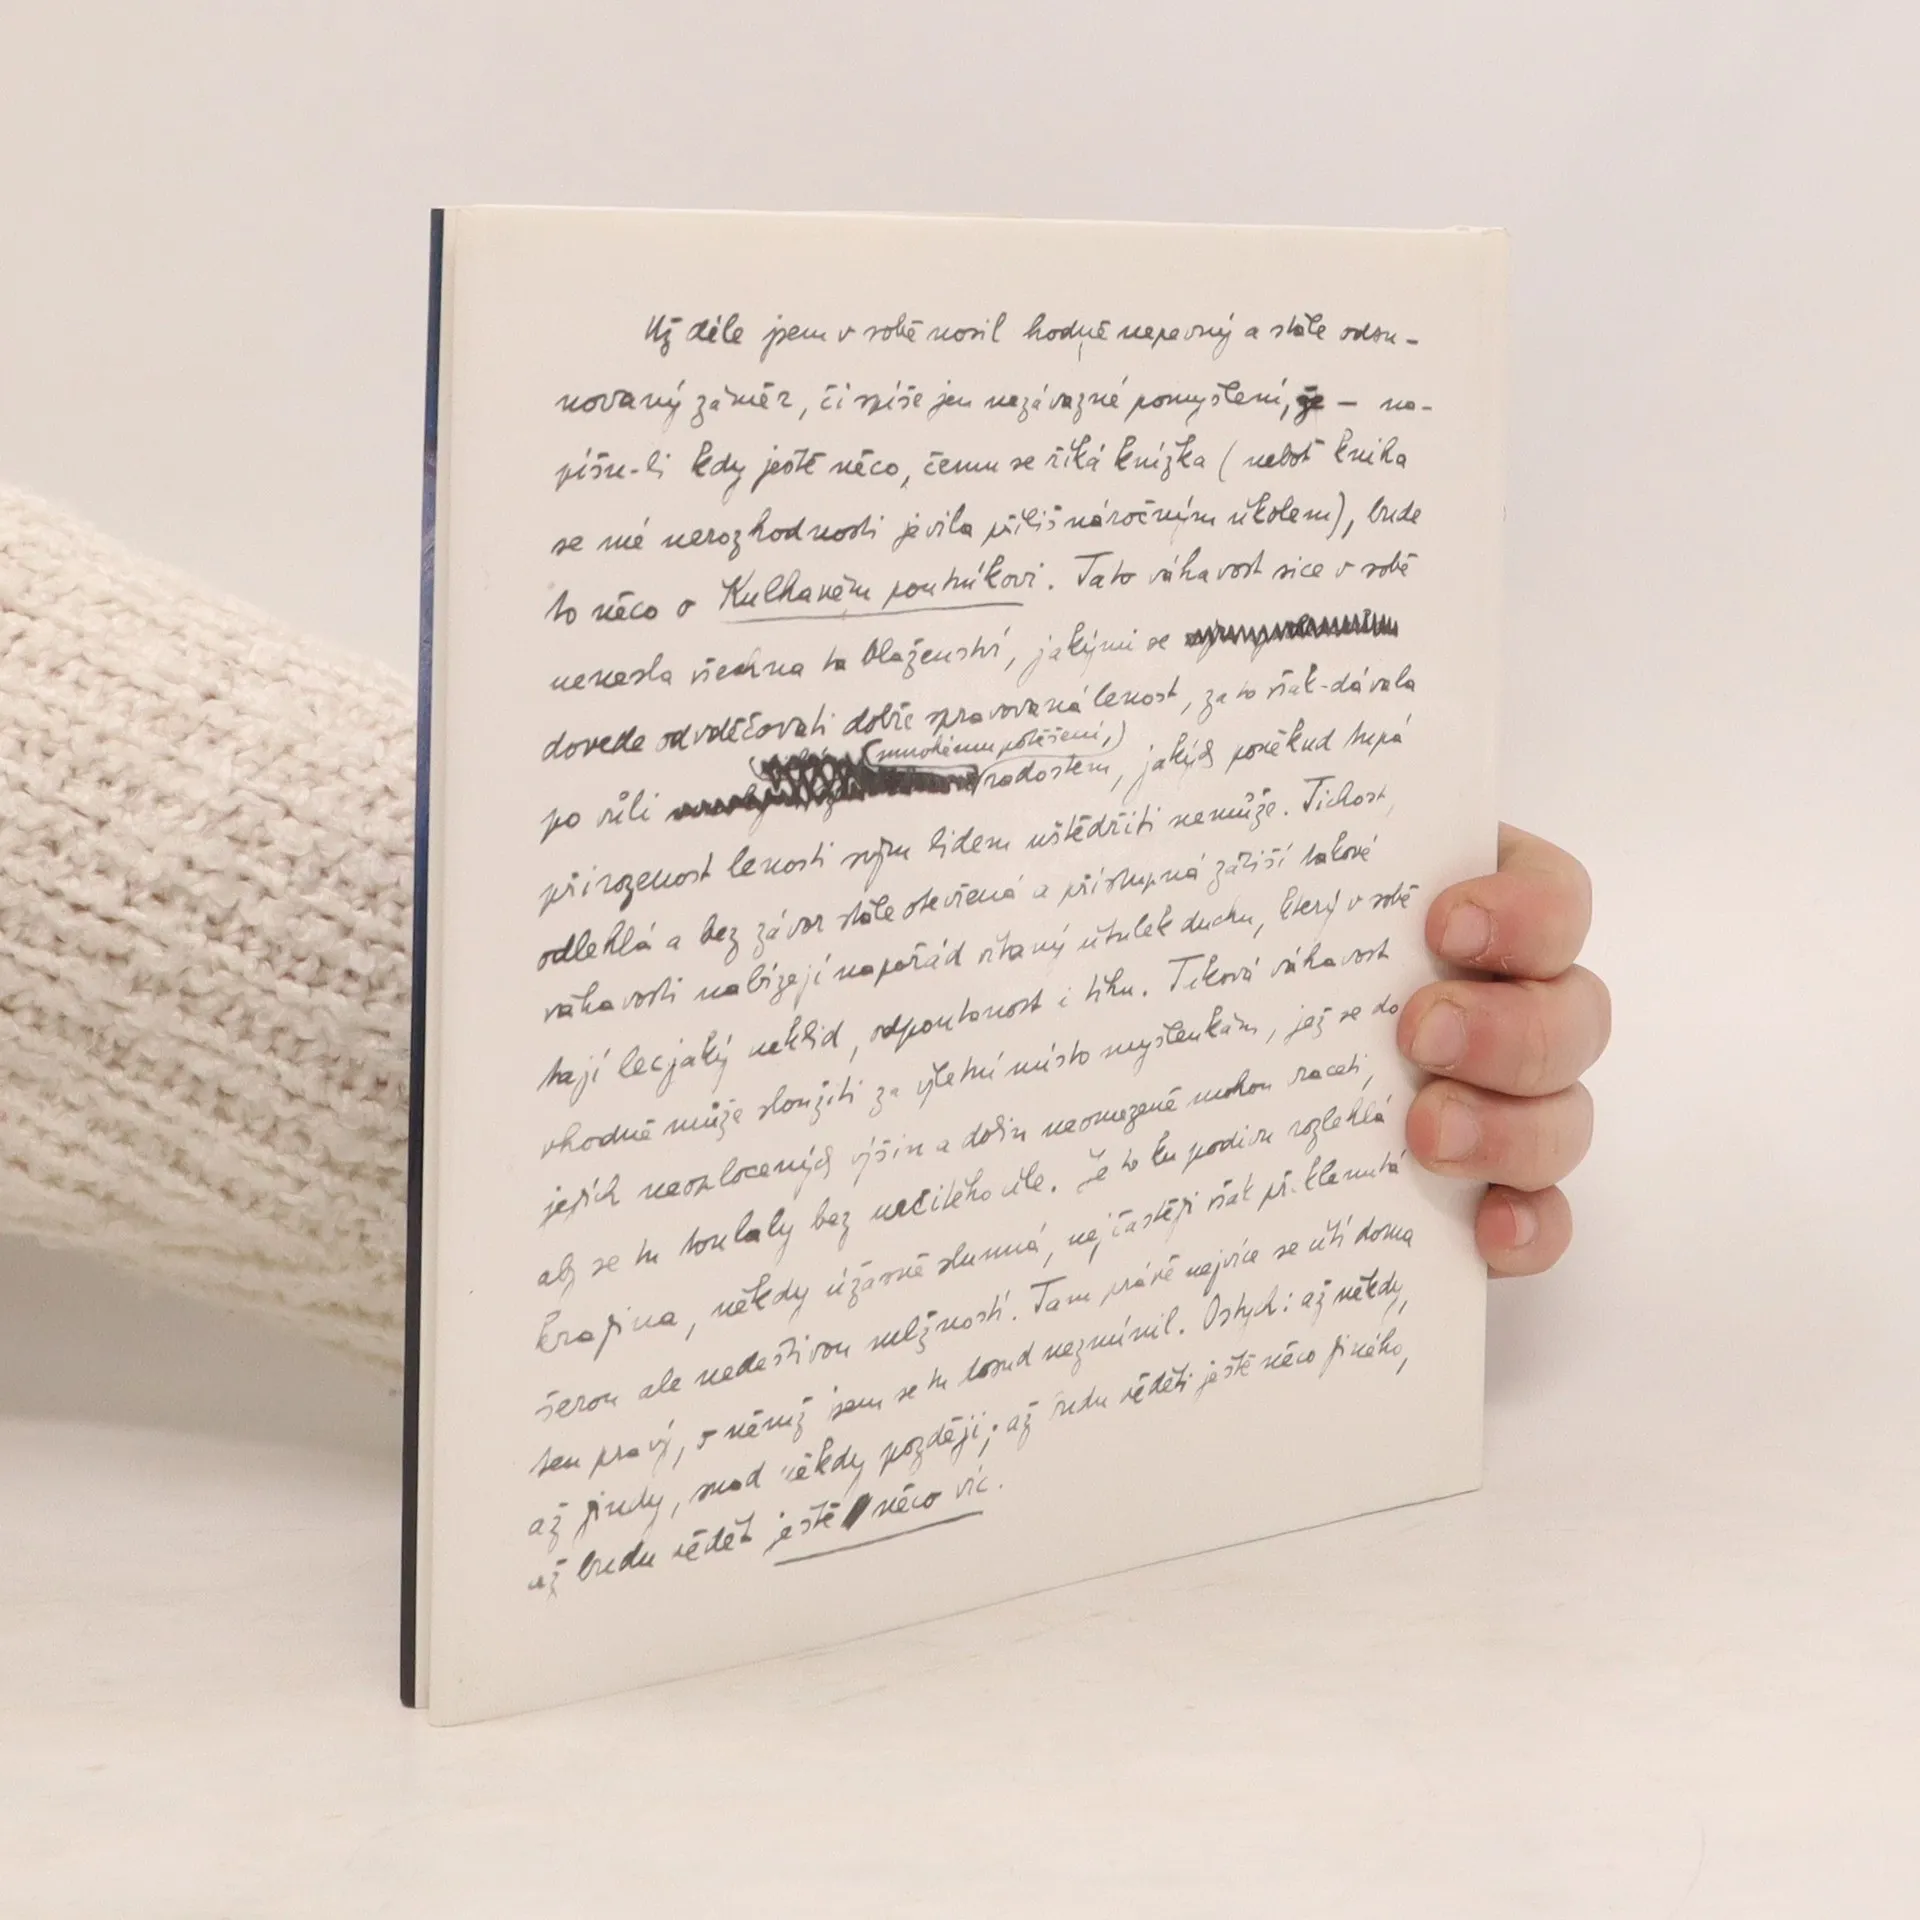 Už déle jsem v sobě nosil hodně nepevný a stále odsu-
novaný záměr, či spíše jen nezávazné pomyšlení, že — na-
píšu-li kdy ještě něco, čemu se říká knížka (neboť kniha
se mé nerozhodnosti jevila příliš náročným úkolem), bude
to něco o Kulhavém poutníkovi. Tato váhavost sice v sobě
nenesla všechna ta blaženství, jakými se
dovede odvděčovati dobře spravovaná lenost, za to však dávala
(mnohému potěšení,)
po vůli radostem, jakých poněkud tupá
přirozenost lenosti svým lidem uštědřiti nemůže. Tichost,
odlehlá a bez závor stále otevřená a přístupná zátiší takové
váhavosti nabízejí napořád vítaný útulek duchu, který v sobě
tají lecjaký neklid, odpoutanost i tíhu. Taková váhavost
vhodně může sloužiti za výletní místo myšlenkám, jež se do
jejich neozlocených výšin a dolin neomezeně mohou raceti,
aby se tu toulaly bez určitého cíle. Je to tu podivu rozlehlá
krajina, někdy úžasně slunná, nejčastěji však příklenutá
šerou ale nedeštivou mlžností. Tam právě nejvíce se cítí doma
ten pravý, o němž jsem se tu dosud nezmínil. Ostych: až někdy,
až jindy, snad někdy později; až budu věděti ještě něco jiného,
až budu vědět ještě něco víc.